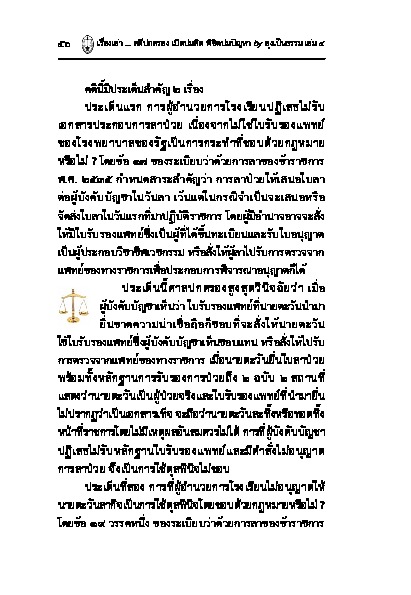 ๕๖ เรื่องเล่า ... คดีปกครอง เปิดปมคิด พิชิตปมปัญหา by ลุงเป็นธรรม เล่ม ๔
คดีนี้มีประเด็นสำคัญ ๒ เรื่อง
ประเด็นแรก การผู้อำนวยการโรงเรียนปฏิเสธไม่รับ
เอกสารประกอบการลาป่วย เนื่องจากไม่ใช่ใบรับรองแพทย์
ของโรงพยาบาลของรัฐเป็นการกระทำที่ชอบด้วยกฎหมาย
หรือไม่ ? โดยข้อ ๑๗ ของระเบียบว่าด้วยการลาของข้าราชการ
พ.ศ. ๒๕๓๕ กำหนดสาระสำคัญว่า การลาป่วยให้เสนอใบลา
ต่อผู้บังคับบัญชาในวันลา เว้นแต่ในกรณีจำเป็นจะเสนอหรือ
จัดส่งใบลาในวันแรกที่มาปฏิบัติราชการ โดยผู้มีอำนาจอาจจะสั่ง
ให้มีใบรับรองแพทย์ซึ่งเป็นผู้ที่ได้ขึ้นทะเบียนและรับใบอนุญาต
เป็นผู้ประกอบวิชาชีพเวชกรรม หรือสั่งให้ผู้ลาไปรับการตรวจจาก
แพทย์ของทางราชการเพื่อประกอบการพิจารณาอนุญาตก็ได้
ประเด็นนี้ศาลปกครองสูงสุดวินิจฉัยว่า เมื่อ
ผู้บังคับบัญชาเห็นว่า ใบรับรองแพทย์ที่นายตะวันนำมา
ยื่นขาดความน่าเชื่อถือก็ชอบที่จะสั่งให้นายตะวัน
ใช้ใบรับรองแพทย์ซึ่งผู้บังคับบัญชาเห็นชอบแทน หรือสั่งให้ไปรับ
การตรวจจากแพทย์ของทางราชการ เมื่อนายตะวันยื่นใบลาป่วย
พร้อมทั้งหลักฐานการรับรองการป่วยถึง ๒ ฉบับ ๒ สถานที่
แสดงว่านายตะวันเป็นผู้ป่วยจริงและใบรับรองแพทย์ที่นำมายื่น
ไม่ปรากฏว่าเป็นเอกสารเท็จ จะถือว่านายตะวันละทิ้งหรือทอดทิ้ง
หน้าที่ราชการโดยไม่มีเหตุผลอันสมควรไม่ได้ การที่ผู้บังคับบัญชา
ปฏิเสธไม่รับหลักฐานใบรับรองแพทย์และมีคำสั่งไม่อนุญาต
การลาป่วย จึงเป็นการใช้ดุลพินิจไม่ชอบ
ประเด็นที่สอง การที่ผู้อำนวยการโรงเรียนไม่อนุญาตให้
นายตะวันลากิจเป็นการใช้ดุลพินิจโดยชอบด้วยกฎหมายหรือไม่ ?
โดยข้อ ๑๙ วรรคหนึ่ง ของระเบียบว่าด้วยการลาของข้าราชการ